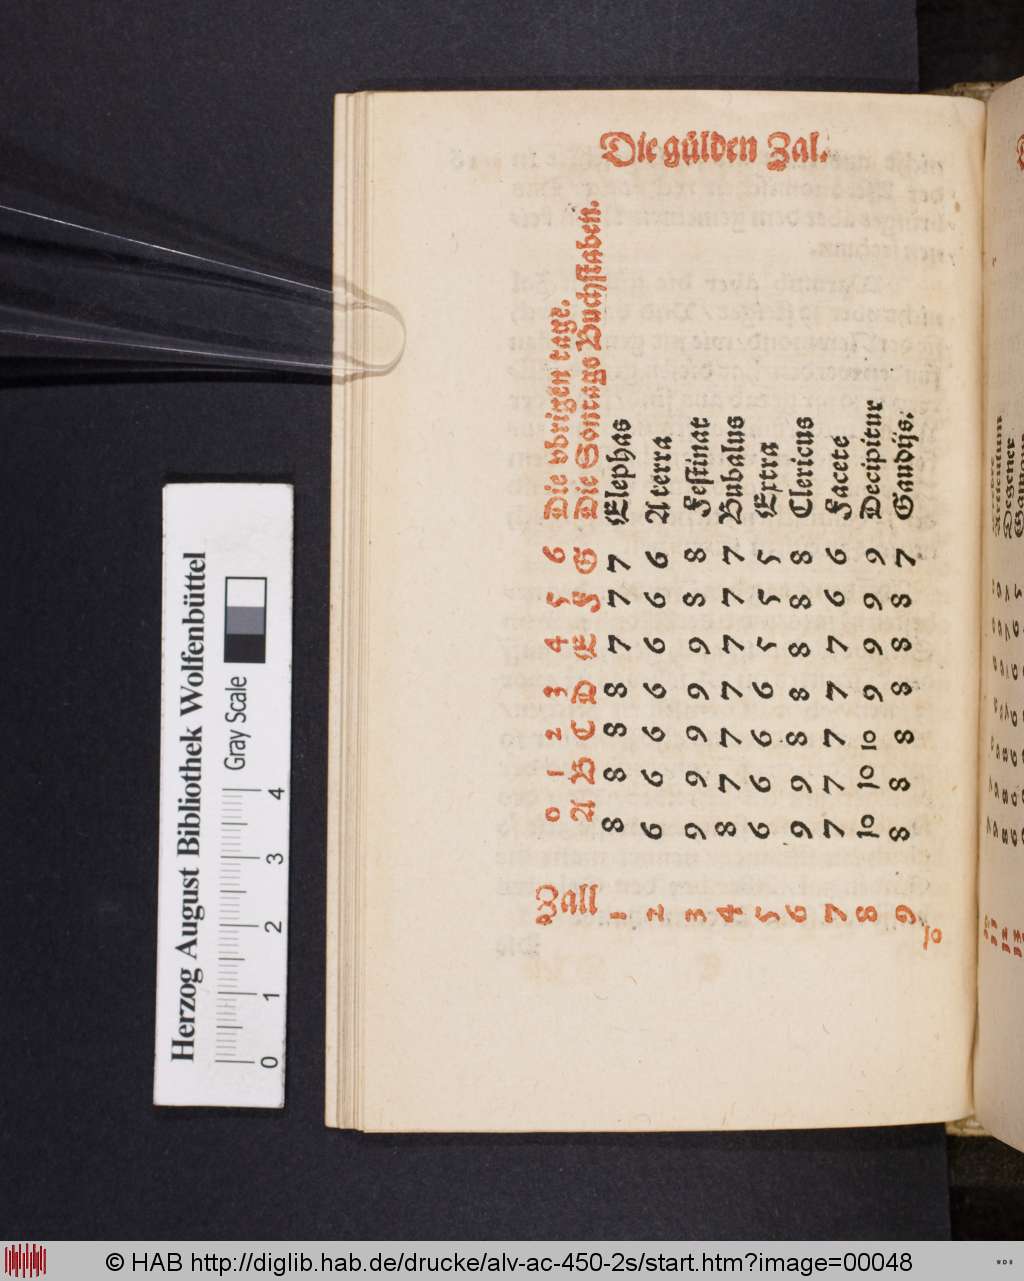 Die gülden Zal.
0 1 2 3 4 5 6 Die vbrigen tage.
Zall A B C D E F G Die Sontags Buchstaben.
1 8 8 8 8 7 7 7 Elephas
2 6 6 6 6 6 6 6 Aterra
3 9 9 9 9 9 8 8 Festinat
4 8 7 7 7 7 7 7 Bubalus
5 6 6 6 6 5 5 5 Extra
6 9 9 8 8 8 8 8 Clericus
7 7 7 7 7 7 6 6 Facete
8 10 10 10 9 9 9 9 Decipitur
9 8 8 8 8 8 8 7 Gaudijs.
10
Degener
Herzog August Bibliothek Wolfenbüttel
0 1 2 3 4 Gray Scale
© HAB http://diglib.hab.de/drucke/alv-ac-450-2s/start.htm?image=00048